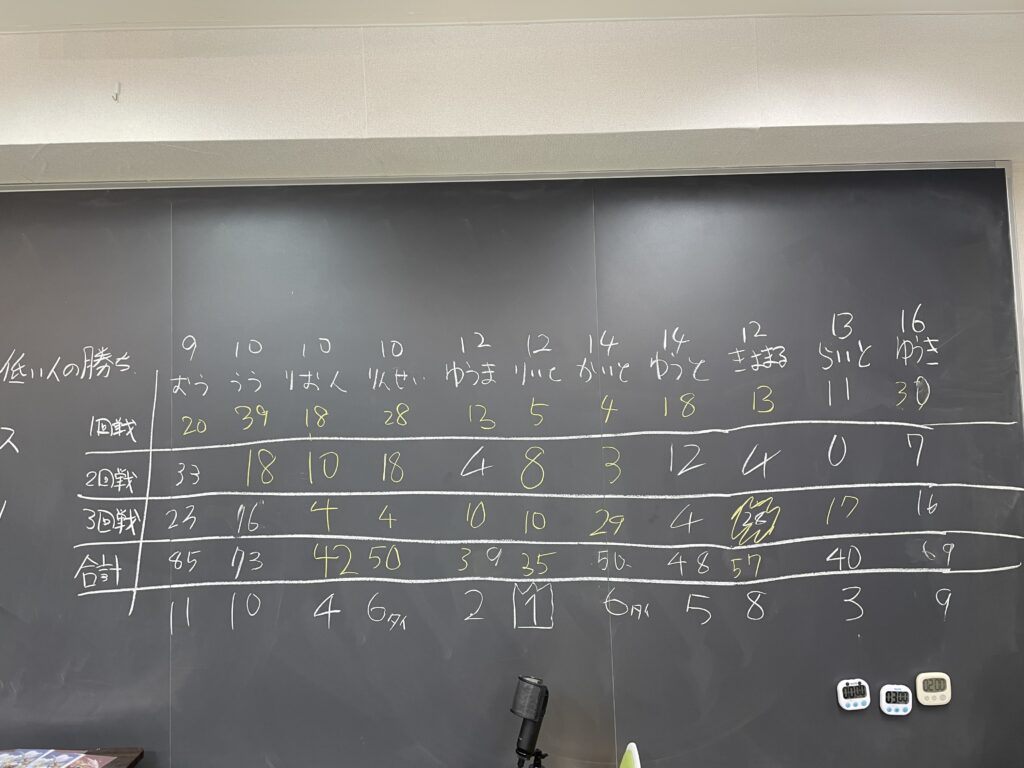 9 10 10 10 12 12 14 14 12 13 16
低い人の勝ち おう うう りおん りんせい ゆうま りいと かいと ゆうと きままる らいと ゆうき
1回戦 20 39 18 28 13 5 4 18 13 11 30
ス
2回戦 33 18 10 18 4 8 3 12 4 0 7
3回戦 23 16 4 4 10 10 29 4 17 16
合計 85 73 42 50 39 35 50 48 57 40 69
11 10 4 6タイ 2 1 6タイ 5 8 3 9
00:00 03:00 02:00